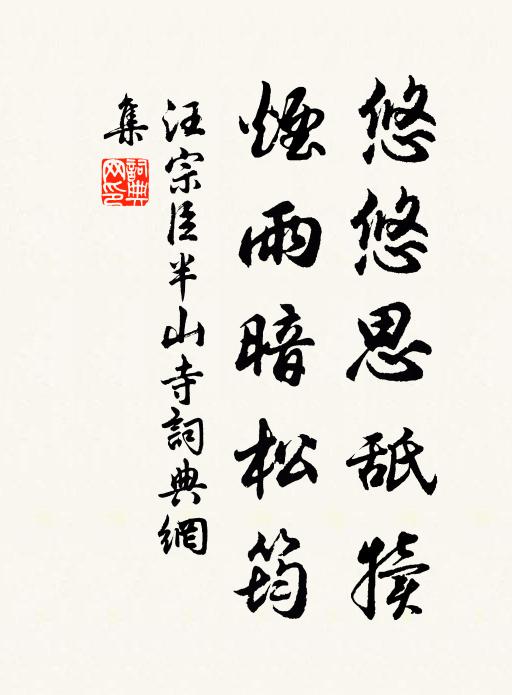 悠悠思舐犢
煙雨暗松筠
汪宗臣半山寺詞典網
集
詞典網印